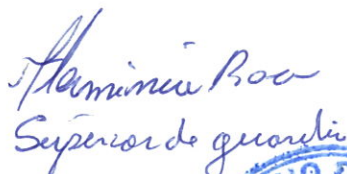 Flaminia Roca
Superior de guardia